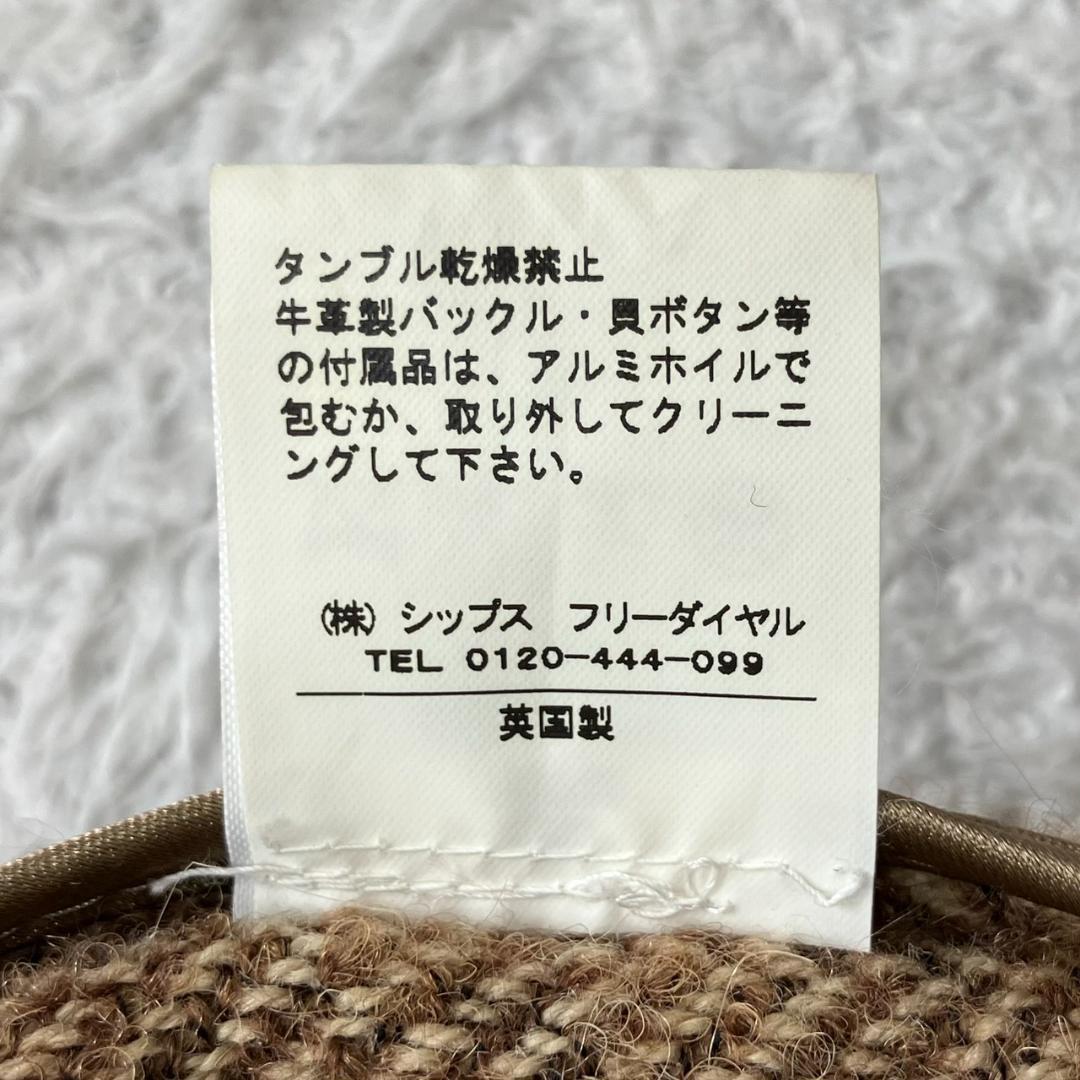 タンブル乾燥禁止
牛革製バックル・貝ボタン等
の付属品は、アルミホイルで
包むか、取り外してクリーニ
ングして下さい。
(株) シップス　フリーダイヤル
TEL 0120-444-099
英国製